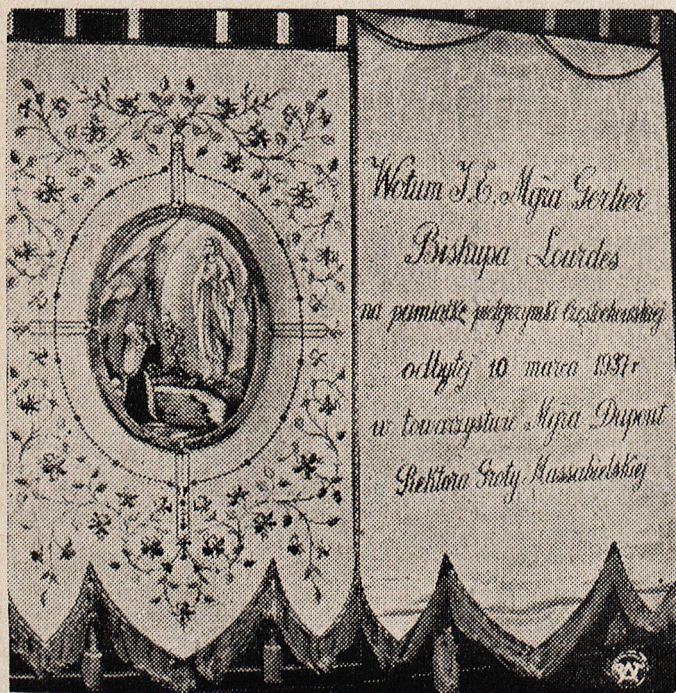 Wotum J. E. Mgra Gerlier
Biskupa Lourdes
na pamiątkę pielgrzymki Częstochowskiej
odbytej 10 marca 1937 r
w towarzystwie Mgra Dupont
Rektora Groty Massabielskiej